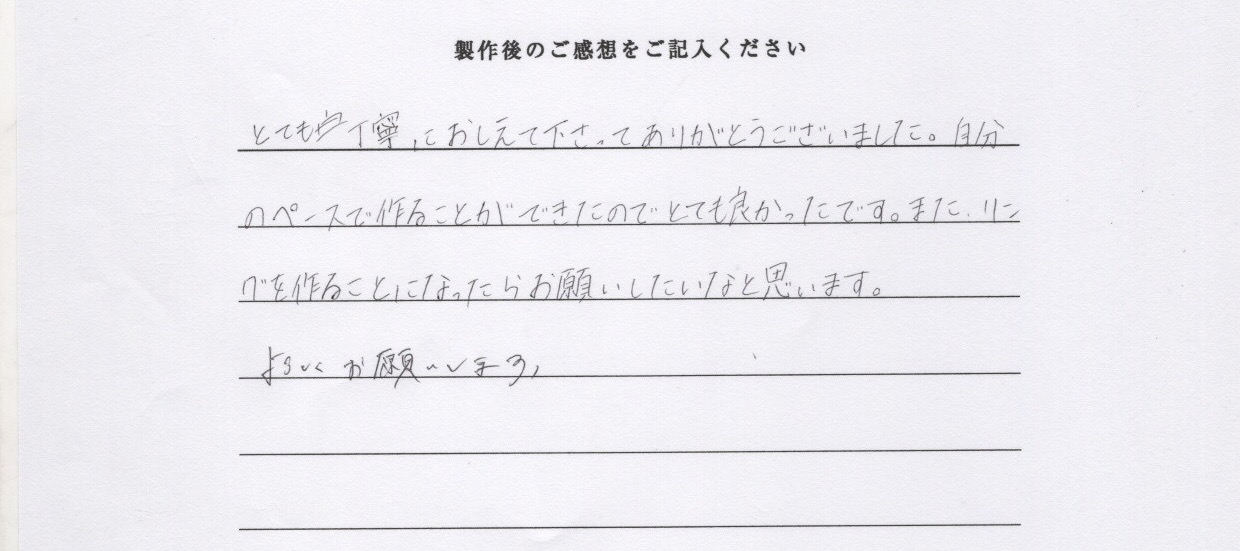 製作後のご感想をご記入ください
とても丁寧におしえて下さってありがとうございました。自分
のペースで作ることができたのでとても良かったです。また、リン
グを作ることになったらお願いしたいなと思います。
よろしくお願いします。